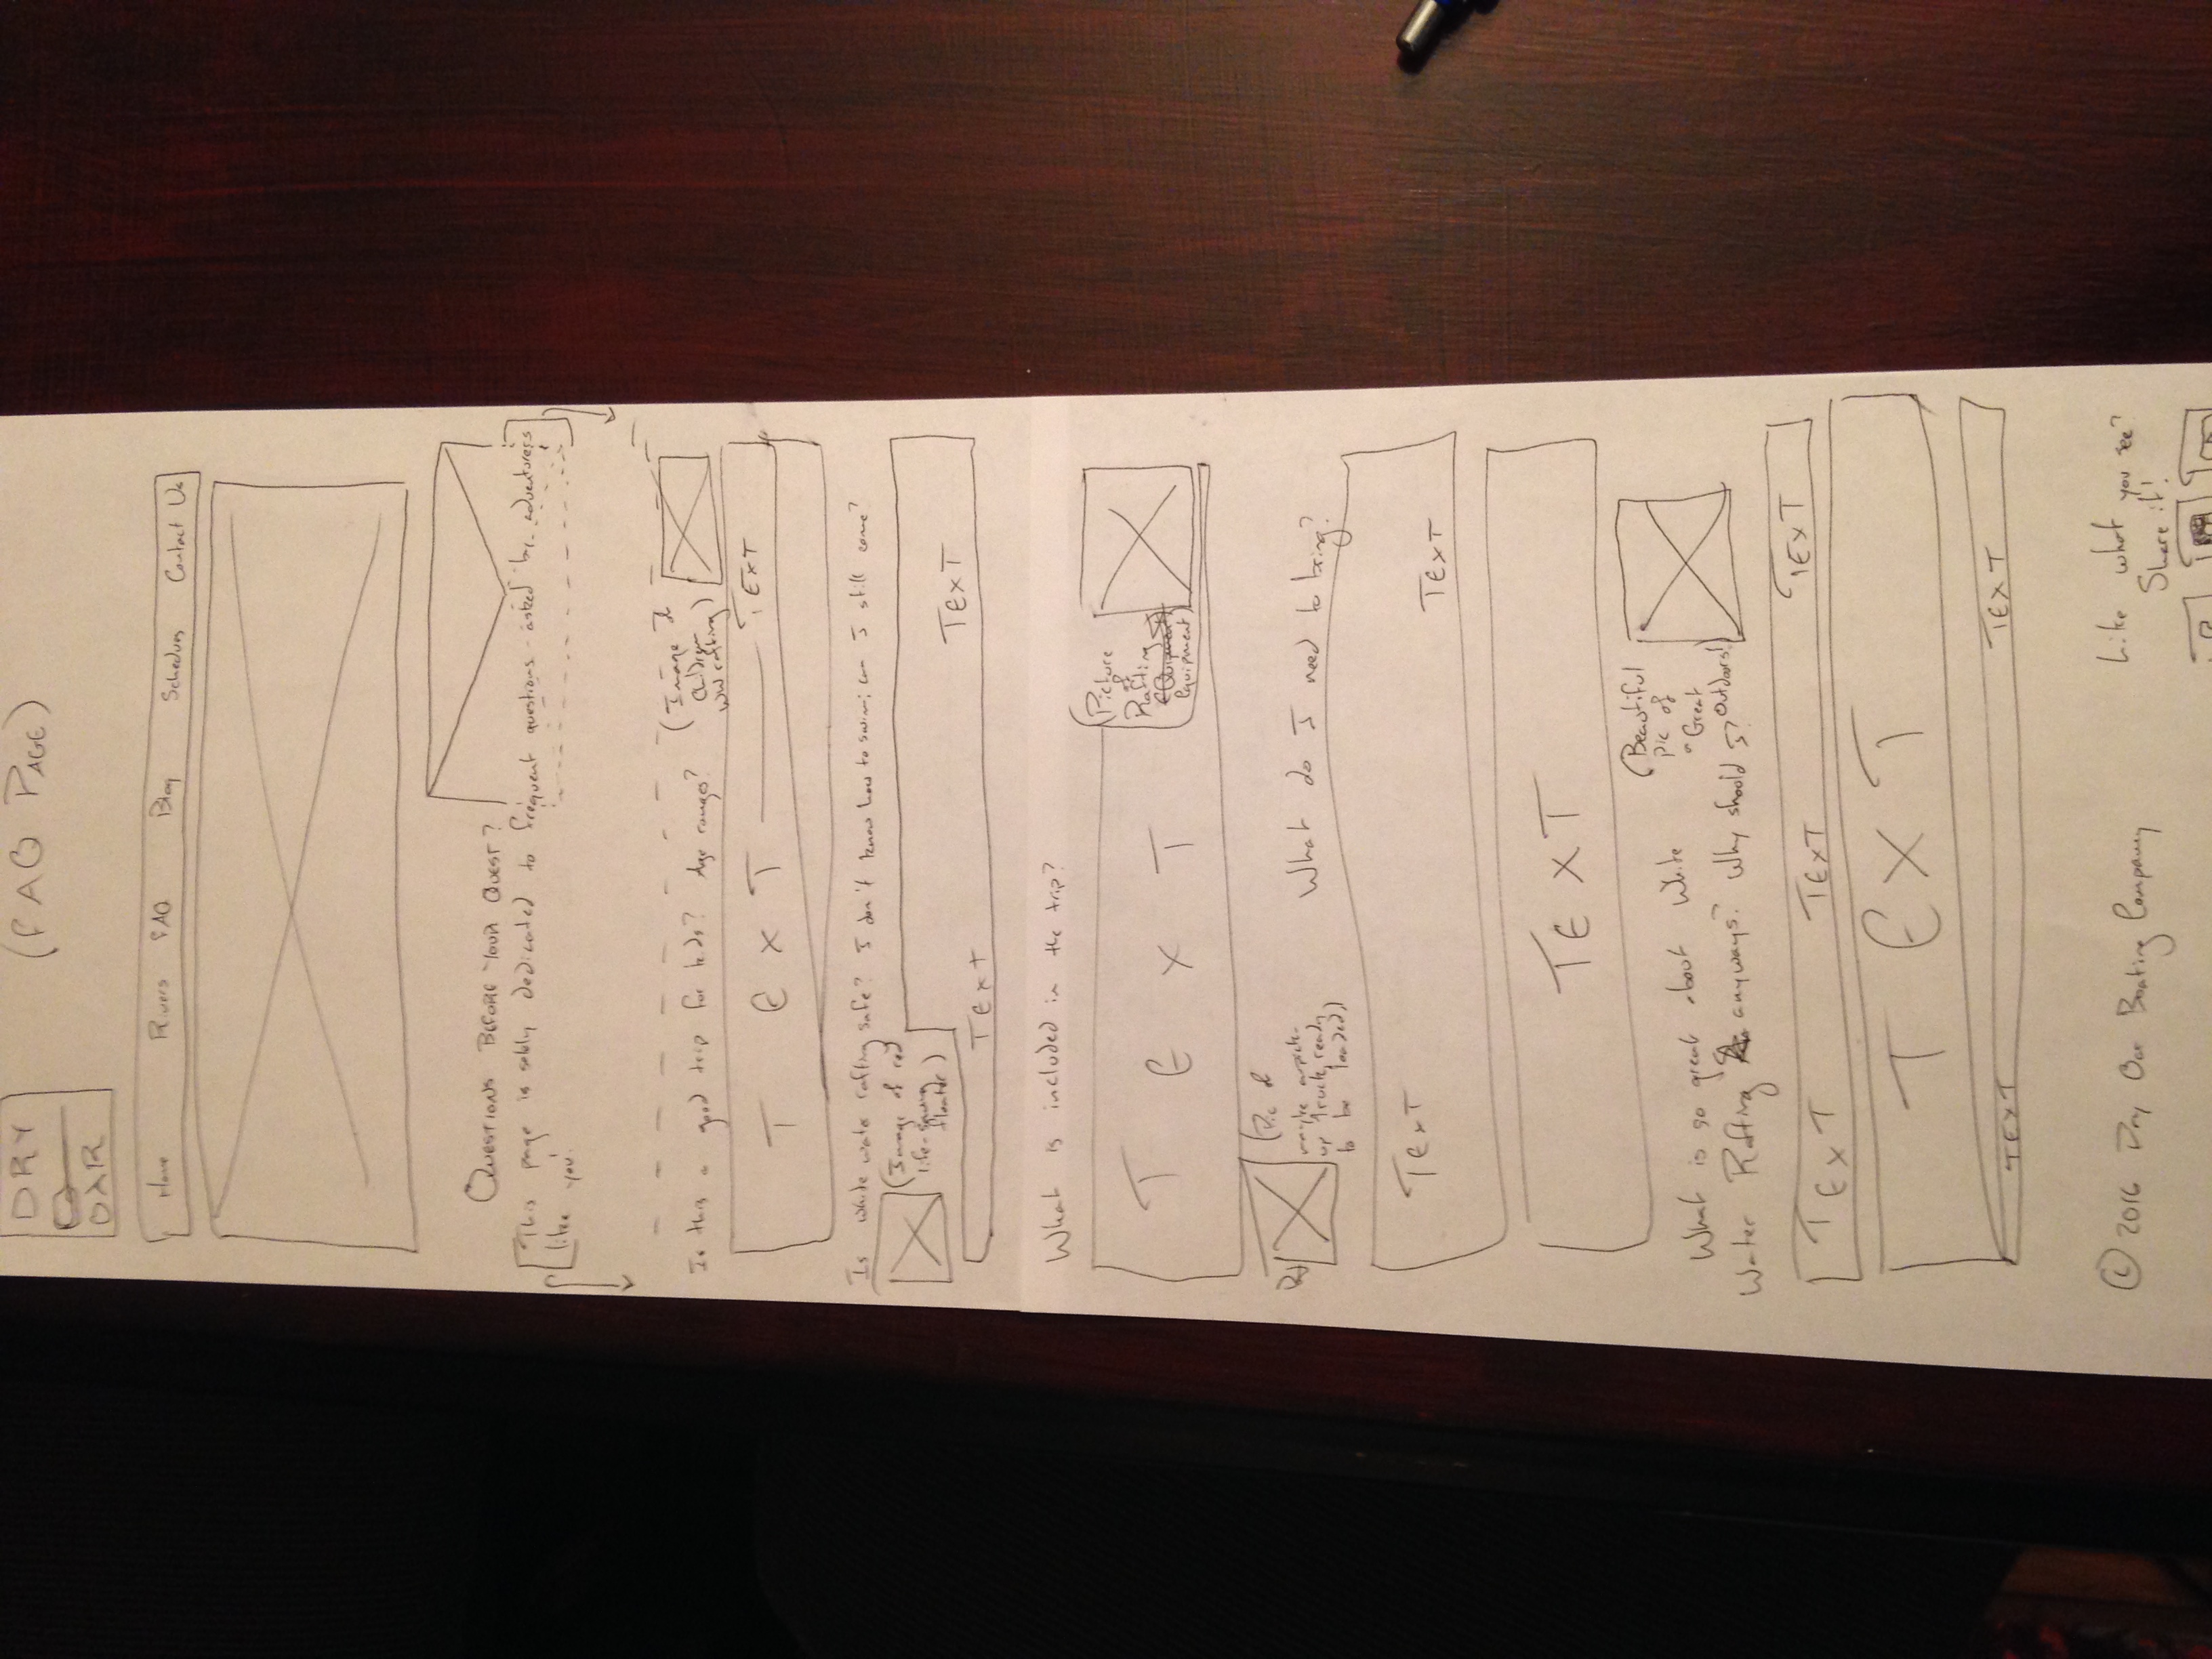 DRY
OAR
(FAQ PAGE)
Home Rivers FAQ Blog Contact Us
QUESTIONS BEFORE YOUR QUEST?
This page is solely dedicated to frequent questions asked by adventurers
like you!
Is this a good trip for kids? Age ranges?
(Image of
Children
WW rafting)
TEXT TEXT
Is white water rafting safe? I don't know how to swim; can I still come?
(Image of red
life-saving
floater)
TEXT
TEXT
What is included in the trip?
(Picture
of
Rafting
Equipment)
TEXT
(Pic of
maybe a pick-
up truck, ready
to be loaded)
What do I need to bring?
TEXT
TEXT
TEXT
(Beautiful
pic of
a Great
Outdoors!)
What is so great about White
Water Rafting anyways? Why should I?
TEXT TEXT TEXT
TEXT
TEXT TEXT
© 2016 Dry Oar Boating Company
Like what you see?
Share it!